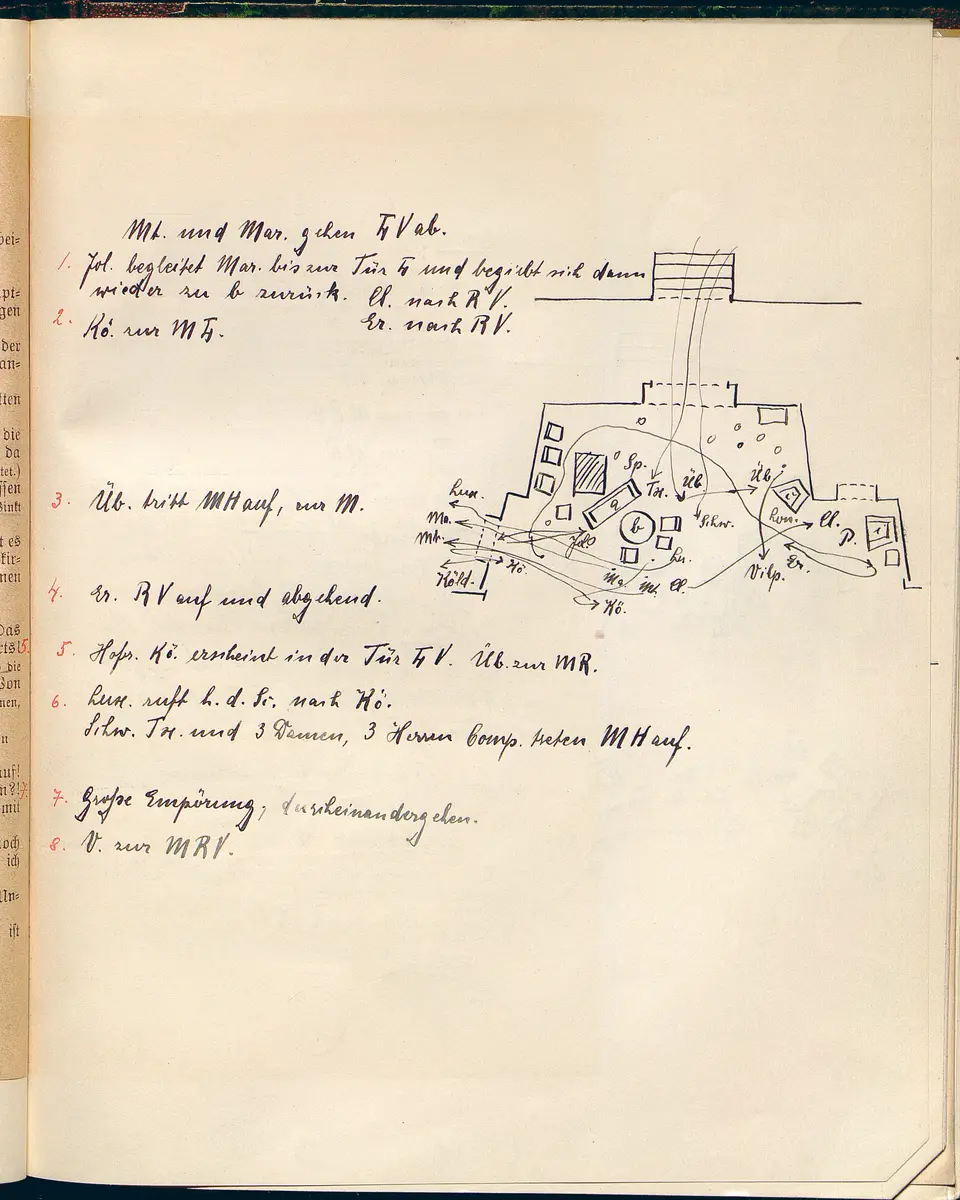 Mt. und Mar. gehen LV ab.
1. Jol. begleitet Mar. bis zur Tür L und begiebt sich dann
wieder zu b zurück. Cl. nach RV.
2. Kö. zur ML. Er. nach RV.
3. Üb. tritt MH auf, zur M.
4. Er. RV auf und abgehend.
5. Hofr. Kö. erscheint in der Tür LV. Üb. zur MR.
6. Lux. ruft h. d. Sc. nach Kö.
Schw. Tx. und 3 Damen, 3 Herrn Comp. treten MH auf.
7. Große Empörung, durcheinandergehen.
8. V. zur MRV.
Lux.
Ma.
Mt.
Köld.
Kö.
Sp.
Tx.
Üb
Schw.
a
b
Jol
Ma.
Mt.
Cl.
Kö.
Üb
c
Cl.
P.
Er.
Vilp.
bei=
pt=
gen
der
an=
tten
die
da
tet.)
ssen
sinkt
t es
kir=
nen
Das
cts! 5.
die
Von
nen,
n
auf!
n?! 7.
mit
noch
ich
Un=
ist